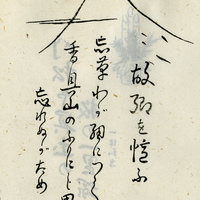 故郷を憶ふ
忘草わが紐につく
香具山のふりにし里
忘れぬがため